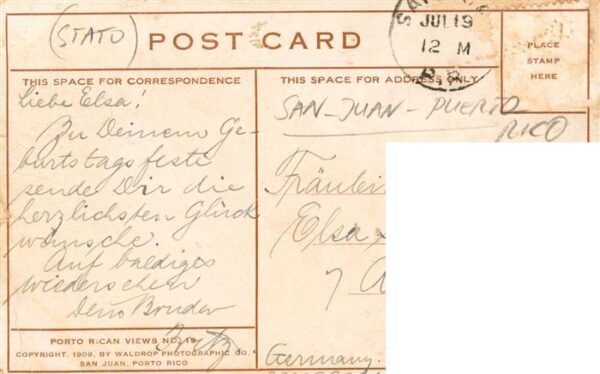 (STATO)
POST CARD
JUL 19
12 M
P.R.
PLACE
STAMP
HERE
THIS SPACE FOR CORRESPONDENCE
THIS SPACE FOR ADDRESS ONLY
Liebe Elsa!
Zu Deinem Ge-
burtstagsfeste
sende Dir die
herzlichsten Glück
wünsche.
Auf baldiges
wiedersehen
Dein Bruder
Fritz.
SAN-JUAN-PUERTO
RICO
Fräulein
Elsa
7
Germany.
PORTO RICAN VIEWS NO. 19
COPYRIGHT, 1909, BY WALDROP PHOTOGRAPHIC CO.
SAN JUAN, PORTO RICO